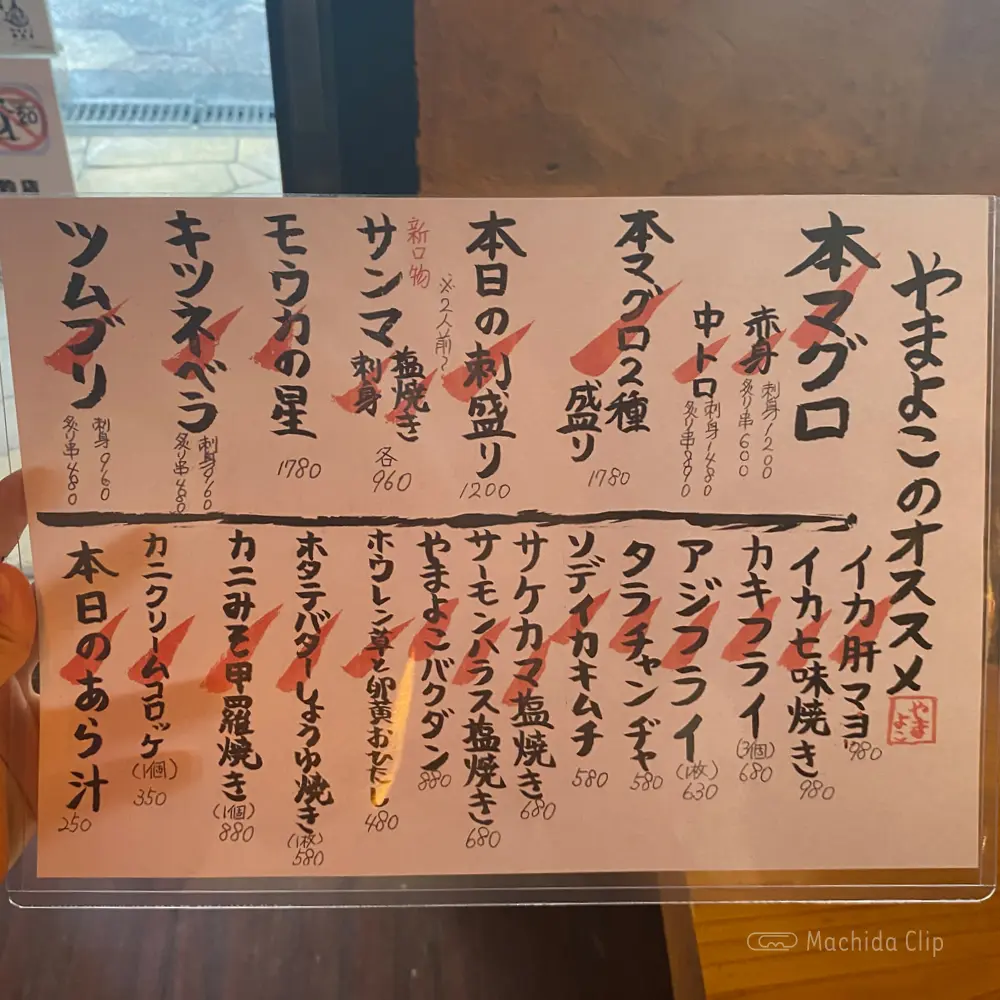 やまよこのオススメ
やま
よこ
本マグロ
赤身
刺身1200
炙り串600
中トロ
刺身1480
炙り串890
本マグロ2種
盛り
1780
本日の刺盛り
1200
※2人前〜
新口物
サンマ
塩焼き
刺身
各
960
モウカの星
1780
キツネベラ
刺身960
炙り串480
ツムブリ
刺身960
炙り串480
イカ肝マヨ
980
イカ七味焼き
980
カキフライ
(3個)
680
アジフライ
(1枚)
630
タラチャンヂャ
580
ソデイカキムチ
580
サケカマ塩焼き
680
サーモンハラス塩焼き
680
やまよこバクダン
880
ホウレン草と卵黄おひたし
480
ホタテバターしょうゆ焼き
(1枚)
580
カニみそ甲羅焼き
(1個)
880
カニクリームコロッケ
(1個)
350
本日のあら汁
250
20
Machida Clip